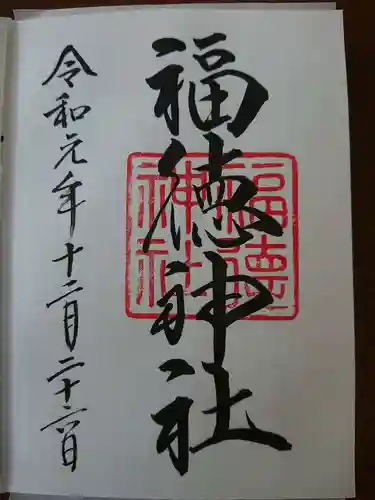 福徳神社
福徳
神社
令和元年十二月二十六日